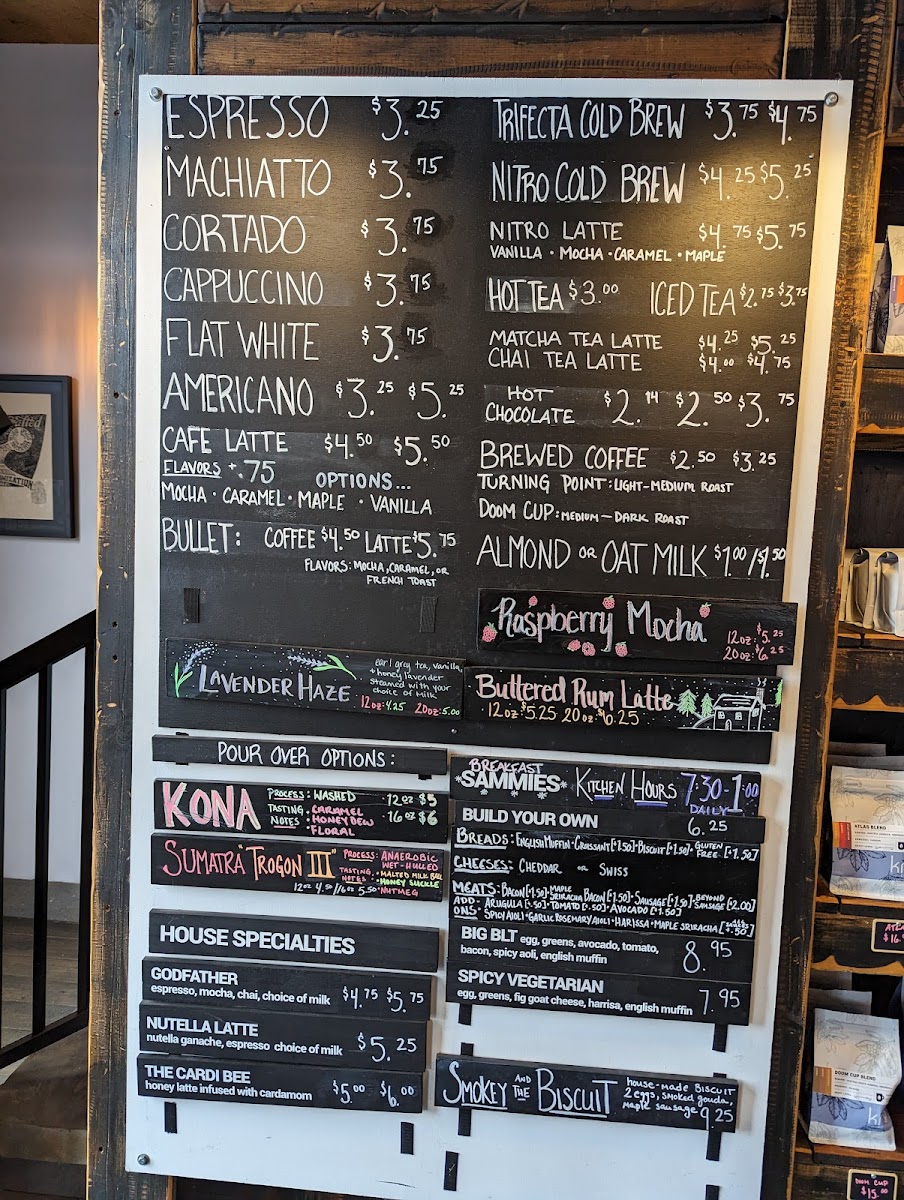 ESPRESSO $3.25
MACHIATTO $3.75
CORTADO $3.75
CAPPUCCINO $3.75
FLAT WHITE $3.75
AMERICANO $3.25 $5.25
CAFE LATTE $4.50 $5.50
FLAVORS +.75 OPTIONS...
MOCHA • CARAMEL • MAPLE • VANILLA
BULLET: COFFEE $4.50 LATTE $5.75
FLAVORS: MOCHA, CARAMEL, OR
FRENCH TOAST
TRIFECTA COLD BREW $3.75 $4.75
NITRO COLD BREW $4.25 $5.25
NITRO LATTE $4.75 $5.75
VANILLA • MOCHA • CARAMEL • MAPLE
HOT TEA $3.00 ICED TEA $2.75 $3.75
MATCHA TEA LATTE $4.25 $5.25
CHAI TEA LATTE $4.00 $4.75
HOT
CHOCOLATE $2.14 $2.50 $3.75
BREWED COFFEE $2.50 $3.25
TURNING POINT: LIGHT-MEDIUM ROAST
DOOM CUP: MEDIUM — DARK ROAST
ALMOND OR OAT MILK $1.00 / $1.50
Raspberry Mocha 12oz: $5.25
20oz: $6.25
LAVENDER HAZE
earl grey tea, vanilla,
+ honey lavender
steamed with your
choice of milk
12oz: 4.25 20oz: 5.00
Buttered Rum Latte
12oz: $5.25 20oz: $6.25
POUR OVER OPTIONS:
KONA
PROCESS: WASHED
TASTING NOTES: • CARAMEL
• HONEYDEW
• FLORAL
12oz $5
16oz $6
SUMATRA "TROGON III"
PROCESS: ANAEROBIC
WET-HULLED
TASTING NOTES: • MALTED MILK BALL
• HONEY SUCKLE
• NUTMEG
12oz 4.50 / 16oz 5.50
HOUSE SPECIALTIES
GODFATHER
espresso, mocha, chai, choice of milk $4.75 $5.75
NUTELLA LATTE
nutella ganache, espresso choice of milk $5.25
THE CARDI BEE
honey latte infused with cardamom $5.00 $6.00
BREAKFAST
*SAMMIES* KITCHEN HOURS 7:30-1:00
DAILY
BUILD YOUR OWN 6.25
BREADS: ENGLISH MUFFIN • CROISSANT [+1.50] • BISCUIT [+1.50] • GLUTEN FREE [+1.50]
CHEESES: CHEDDAR OR SWISS
MEATS: BACON [+1.50] • MAPLE SRIRACHA BACON [+1.50] • SAUSAGE [+1.50] • BEYOND SAUSAGE [+2.00]
ADD-ONS: ARUGULA [+.50] • TOMATO [+.50] • AVOCADO [+1.50]
• SPICY AIOLI • GARLIC ROSEMARY AIOLI • HARISSA • MAPLE SRIRACHA [+.50]
BIG BLT egg, greens, avocado, tomato,
bacon, spicy aoli, english muffin 8.95
SPICY VEGETARIAN
egg, greens, fig goat cheese, harrisa, english muffin 7.95
SMOKEY AND THE BISCUIT
house-made BISCUIT
2 eggs, smoked gouda,
maple sausage 9.25
ATLAS BLEND
DOOM CUP BLEND
DOOM CUP
$15.00